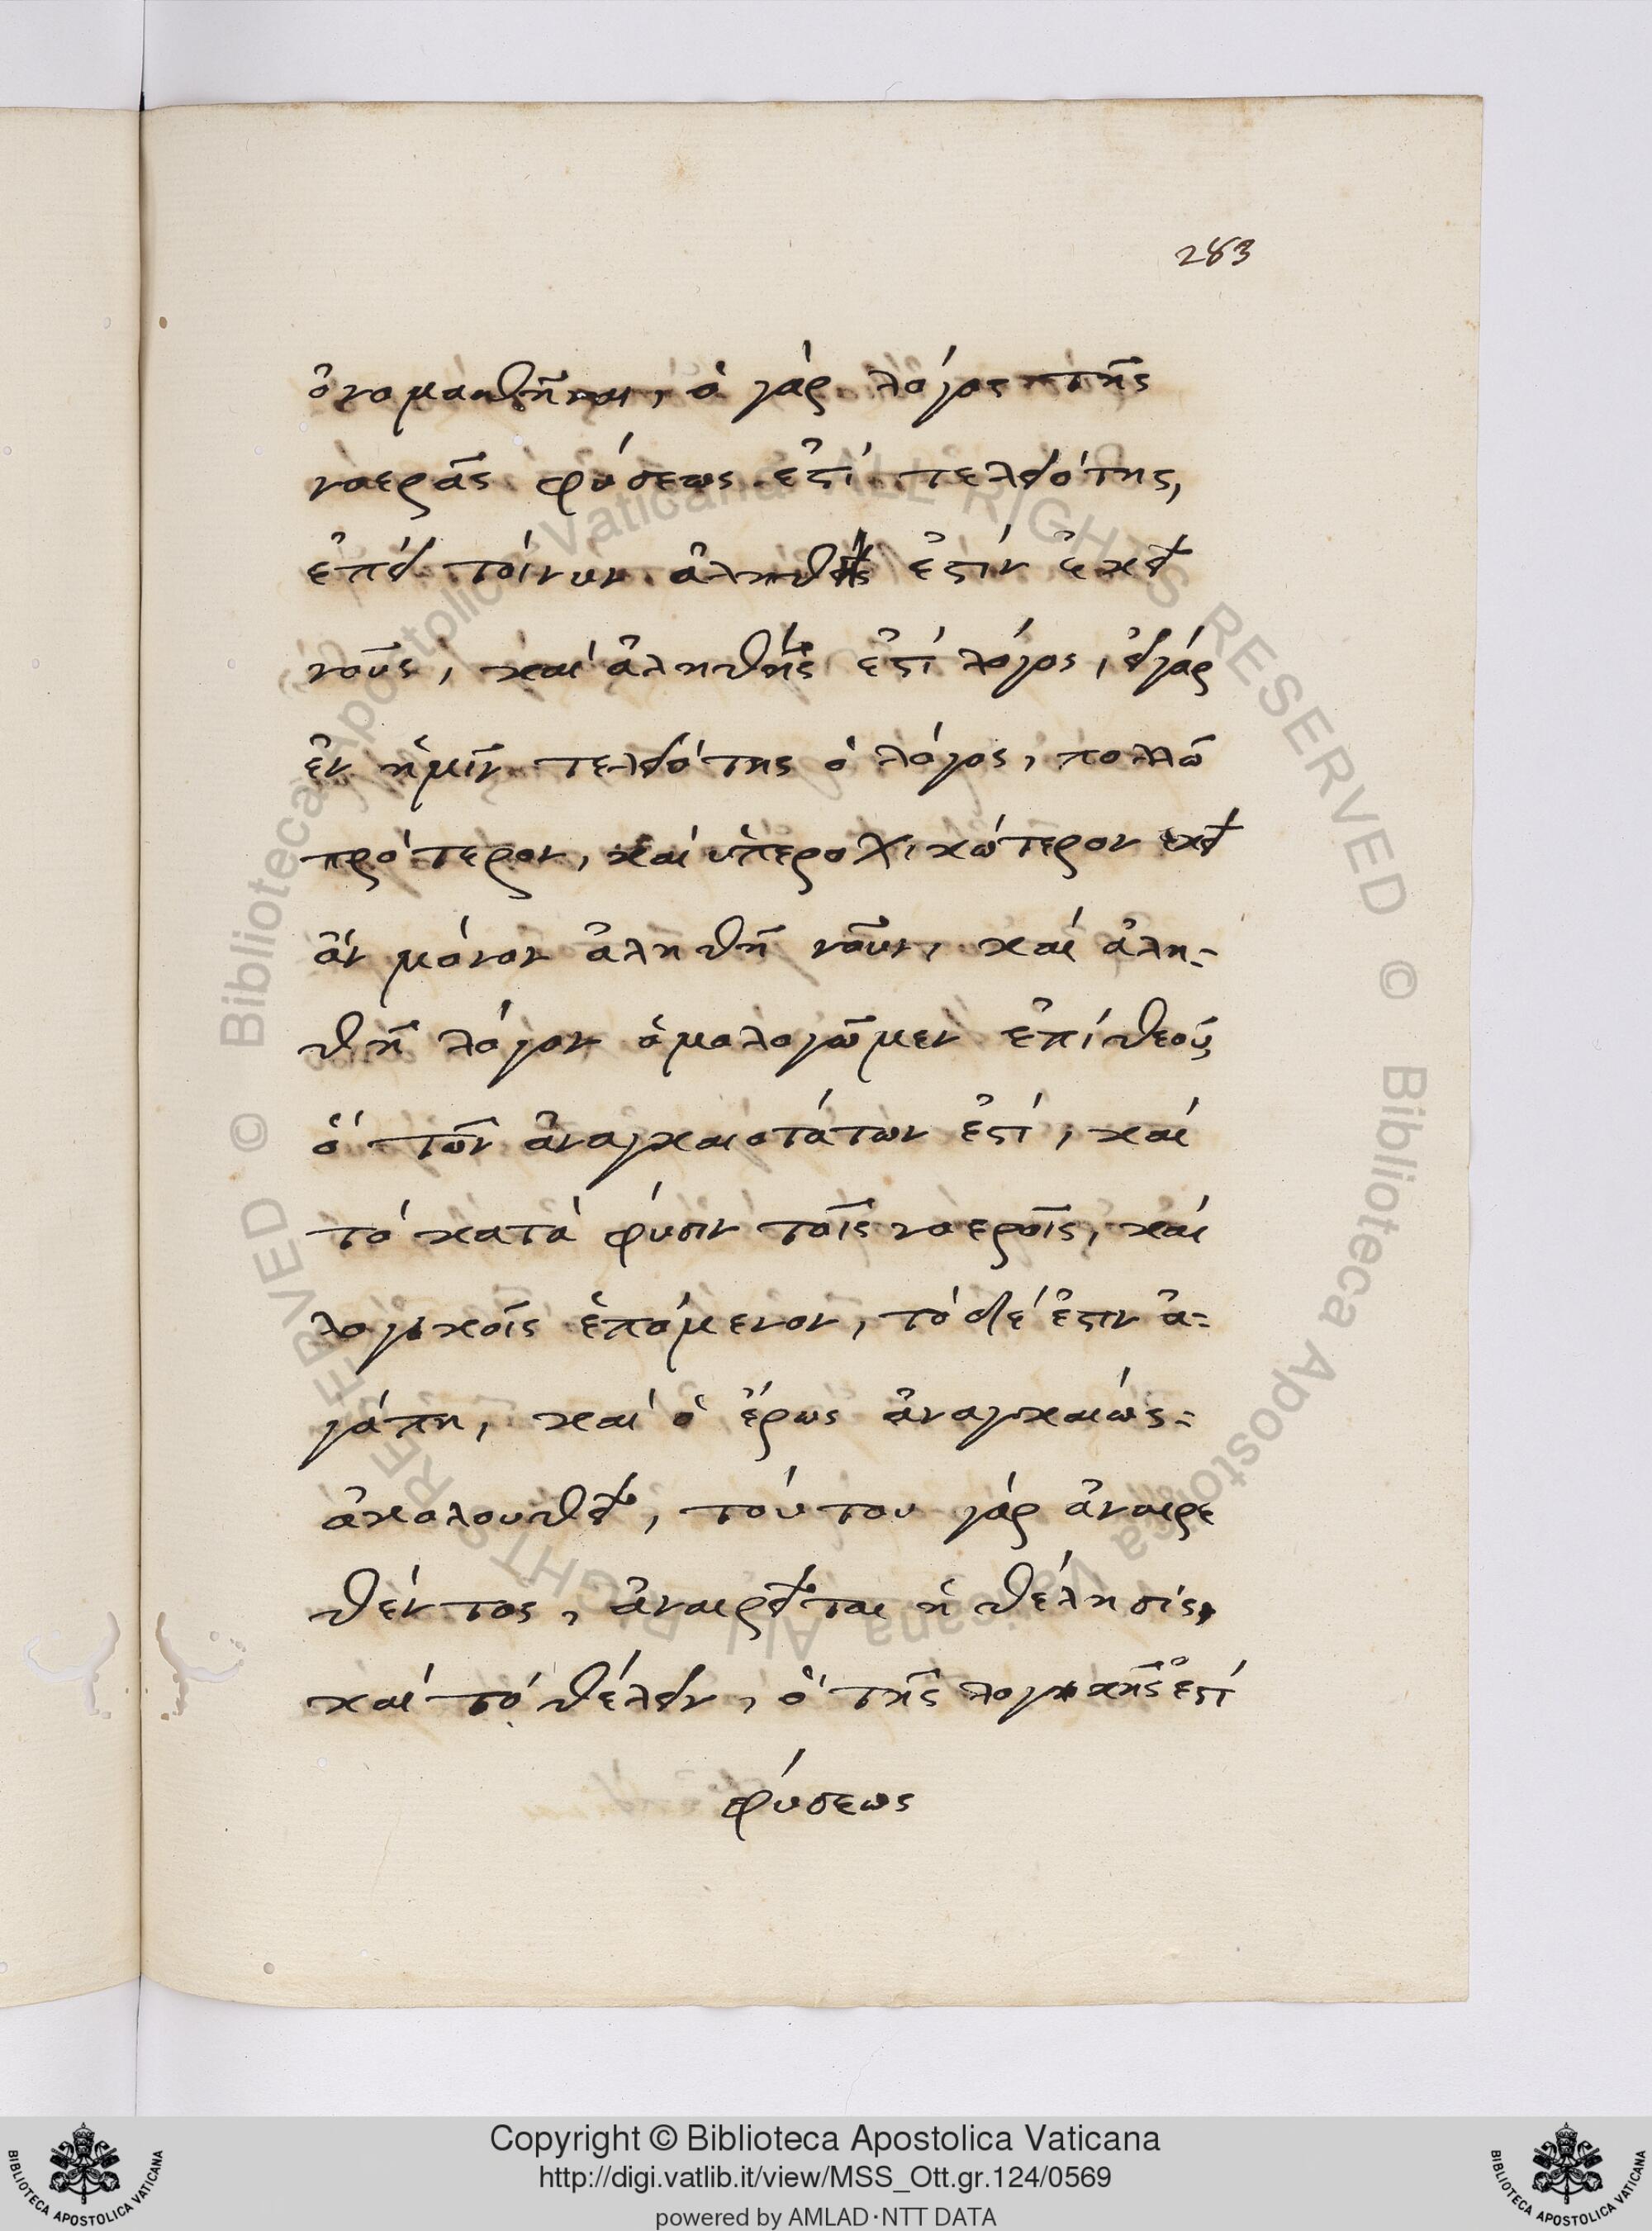 283
ὀνομασθῆναι, ὁ γάρ λόγος τῆς
νοερᾶς φύσεως ἐστί τελειότης,
ἐπεί τοίνυν ἀληθὴς ἐστίν ἐκεῖ
νοῦς, καί ἀληθής ἐστί λόγος, εἰγάρ
ἐν ἡμῖν τελειότης ὁ λόγος, πολλῶ
πρότερον, καί ὑπεροχικώτερον ἐκεῖ
ἄν μόνον ἀληθῆ νοῦν, καί ἀλη-
θῆ λόγον ὁμολογῶμεν ἐπί θεοῦ,
ὅ τῶν ἀναγκαιοτάτων ἐστί, καί
τό κατά φύσιν τοῖς νοεροῖς, καί
λογικοῖς ἑπόμενον, τό δέ ἐστιν ἀ-
γάπη, καί ὁ ἔρως ἀναγκαιώς
ἀκολουθεῖ, τούτου γάρ ἀναιρε
θέντος, ἀναιρεῖται ἡ θέλησίς,
καί τό θέλειν, ὅ τῆς λογικῆς ἐστί
φύσεως
Copyright © Biblioteca Apostolica Vaticana
http://digi.vatlib.it/view/MSS_Ott.gr.124/0569
powered by AMLAD·NTT DATA
BIBLIOTECA APOSTOLICA VATICANA
BIBLIOTECA APOSTOLICA VATICANA
© Biblioteca Apostolica Vaticana ALL RIGHTS RESERVED © Biblioteca Apostolica Vaticana ALL RIGHTS RESERVED